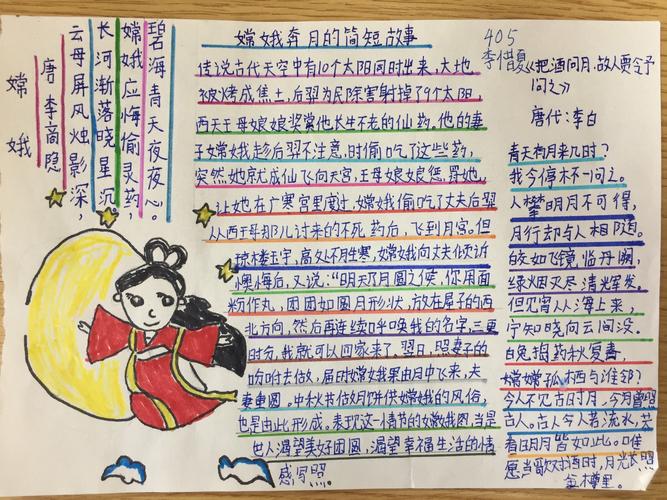 碧海青天夜夜心。
嫦娥应悔偷灵药，
长河渐落晓星沉。
云母屏风烛影深，
唐 李商隐
嫦娥
嫦娥奔月的简短故事
传说古代天空中有10个太阳同时出来，大地
被烤成焦土，后羿为民除害射掉了9个太阳
西天王母娘娘奖赏他长生不老的仙药，他的妻
子嫦娥趁后羿不注意，时偷吃了这些药，
突然她就成仙飞向天宫，王母娘娘惩罪她，
让她在广寒宫里度过，嫦娥偷吃了丈夫后羿
从西王母那儿讨来的不死药后，飞到月宫。但
琼楼玉宇，高处不胜寒，嫦娥向丈夫倾诉
懊悔后，又说："明天乃月圆之候，你用面
粉作丸，团团如圆月形状，放在屋子的西
北方向，然后再连续呼唤我的名字，三更
时分，我就可以回家来了。翌日，照妻子的
吩咐去做，届时嫦娥果由月中飞来，夫
妻重圆。中秋节做月饼供嫦娥的风俗，
也是由此形成。表现这一情节的嫦娥图，当是
世人渴望美好团圆，渴望幸福生活的情
感写照。
405
李惜夏
《把酒问月，故人贾令予
问之》
唐代：李白
青天有月来几时？
我今停杯一问之。
人攀明月不可得，
月行却与人相随。
皎如飞镜临丹阙，
绿烟灭尽清光辉发。
但见宵从海上来，
宁知晓向云间没。
白兔捣药秋复春，
嫦娥孤栖与谁邻？
今人不见古时月，今月曾照
古人。古人今人若流水，共
看明月皆如此。唯
愿当歌对酒时，月光长照
金樽里。